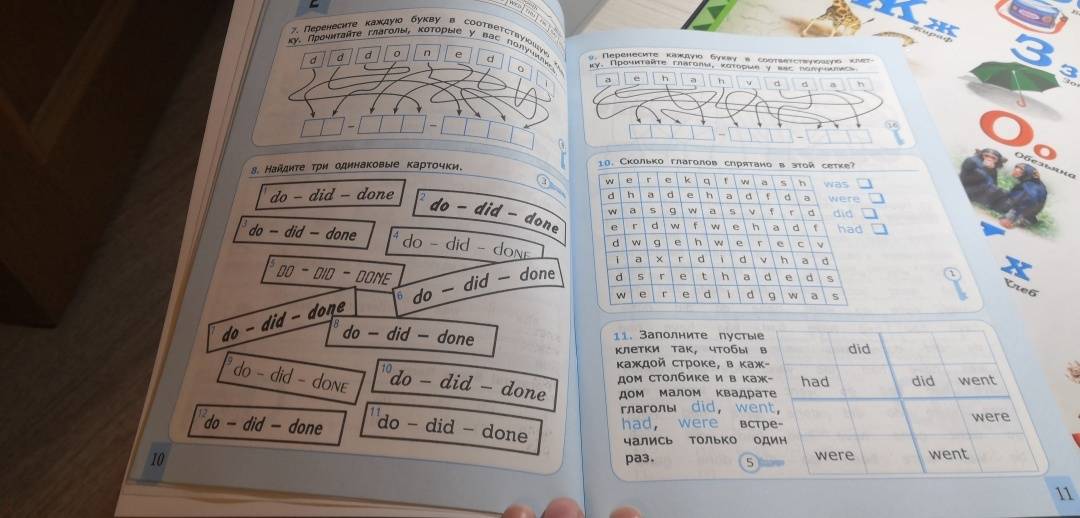 7. Перенесите каждую букву в соответствующую
ку. Прочитайте глаголы, которые у вас получились.
d d d o n e d o i
8. Найдите три одинаковые карточки.
3
1 do – did – done
2 do – did – done
3 do – did – done
4 do – did – done
5 DO – DID – DONE
6 do – did – done
7 do – did – done
8 do – did – done
9 do – did – done
10 do – did – done
12 do – did – done
11 do – did – done
10
9. Перенесите каждую букву в соответствующую клет-
ку. Прочитайте глаголы, которые у вас получились.
a e h a h v d d a h
10. Сколько глаголов спрятано в этой сетке?
w e r e k q f w a s h
d h a d e h a d f d a
w a s g w a s v f r d
e r d w f w e h a d f
d w g e h w e r e c v
i a x r d i d v h a d
d s r e t h a d e d s
w e r e d i d g w a s
was
were
did
had
1
11. Заполните пустые
клетки так, чтобы в
каждой строке, в каж-
дом столбике и в каж-
дом малом квадрате
глаголы did, went,
had, were встре-
чались только один
раз.
5
did
had did went
were
were went
11
Жж
Жираф
Зз
Оо
Обезьяна
Х
Хлеб